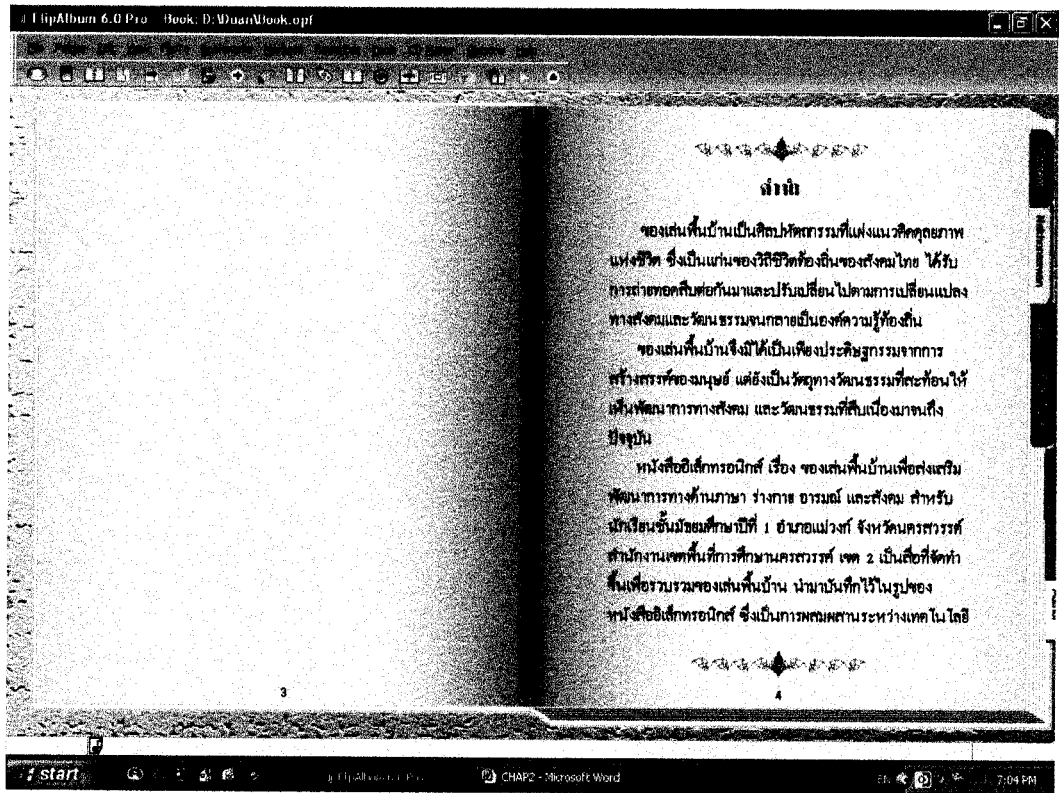 FlipAlbum 6.0 Pro - Book: D:\Duan\Book.opf
คำนำ
ของเล่นพื้นบ้านเป็นศิลปหัตถกรรมที่แฝงแนวคิดดุลยภาพ
แห่งชีวิต ซึ่งเป็นแก่นของวิถีชีวิตท้องถิ่นของสังคมไทย ได้รับ
การถ่ายทอดสืบต่อกันมาและปรับเปลี่ยนไปตามการเปลี่ยนแปลง
ทางสังคมและวัฒนธรรมจนกลายเป็นองค์ความรู้ท้องถิ่น
ของเล่นพื้นบ้านจึงมิได้เป็นเพียงประดิษฐกรรมจากการ
สร้างสรรค์ของมนุษย์ แต่ยังเป็นวัตถุทางวัฒนธรรมที่สะท้อนให้
เห็นพัฒนาการทางสังคม และวัฒนธรรมที่สืบเนื่องมาจนถึง
ปัจจุบัน
หนังสืออิเล็กทรอนิกส์ เรื่อง ของเล่นพื้นบ้านเพื่อส่งเสริม
พัฒนาการทางด้านภาษา ร่างกาย อารมณ์ และสังคม สำหรับ
นักเรียนชั้นมัธยมศึกษาปีที่ 1 อำเภอแม่วงก์ จังหวัดนครสวรรค์
สำนักงานเขตพื้นที่การศึกษานครสวรรค์ เขต 2 เป็นสื่อที่จัดทำ
ขึ้นเพื่อรวบรวมของเล่นพื้นบ้าน นำมาบันทึกไว้ในรูปของ
หนังสืออิเล็กทรอนิกส์ ซึ่งเป็นการผสมผสานระหว่างเทคโนโลยี
3
4
start
CHAP2 - Microsoft Word
EN
7:04 PM